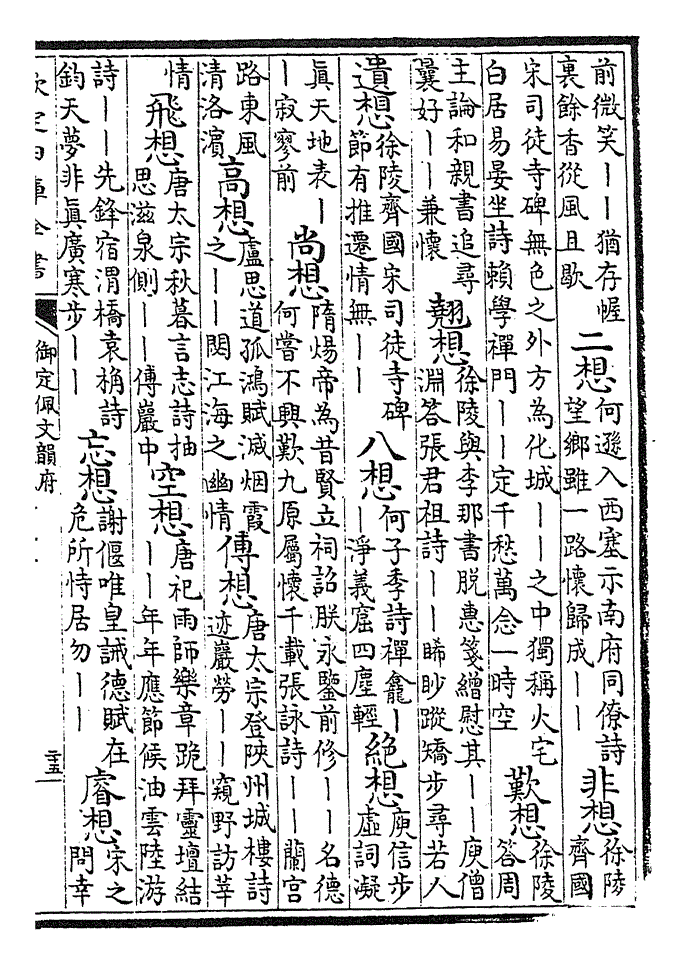 前微笑丨丨猶存幄
裏餘香從風且歇
二想
何遜入西塞示南府同僚詩
望鄉雖一路懷歸成丨丨
非想
徐陵
齊國
宋司徒寺碑無色之外方為化城丨丨之中獨稱火宅
白居易晏坐詩賴學禪門丨丨定千愁萬念一時空
歎想
徐陵
答周
主論和親書追尋
曩好丨丨兼懷
翹想
徐陵與李那書脫惠箋繒慰其丨丨庾僧
淵答張君祖詩丨丨睎眇蹤矯步尋若人
遺想
徐陵齊國宋司徒寺碑
節有推遷情無丨丨
八想
何子季詩禪龕丨
丨淨義窟四塵輕
絕想
庾信步
虛詞凝
眞天地表丨
丨寂寥前
尚想
隋煬帝為昔賢立祠詔朕永鑒前修丨丨名德
何嘗不興歎九原屬懷千載張詠詩丨丨蘭宫
路東風
清洛濱
高想
盧思道孤鴻賦滅烟霞
之丨丨閟江海之幽情
傅想
唐太宗登陝州城樓詩
迹巖勞丨丨窺野訪莘
情
飛想
唐太宗秋暮言志詩抽
思滋泉側丨丨傅巖中
空想
唐祀雨師樂章跪拜靈壇結
丨丨年年應節候油雲陸游
詩丨丨先鋒宿渭橋袁桷詩
鈞天夢非眞廣寒步丨丨
忘想
謝偃唯皇誡德賦在
危所恃居勿丨丨
睿想
宋之
問幸
欽定四庫全書
御定佩文韻府
二十五